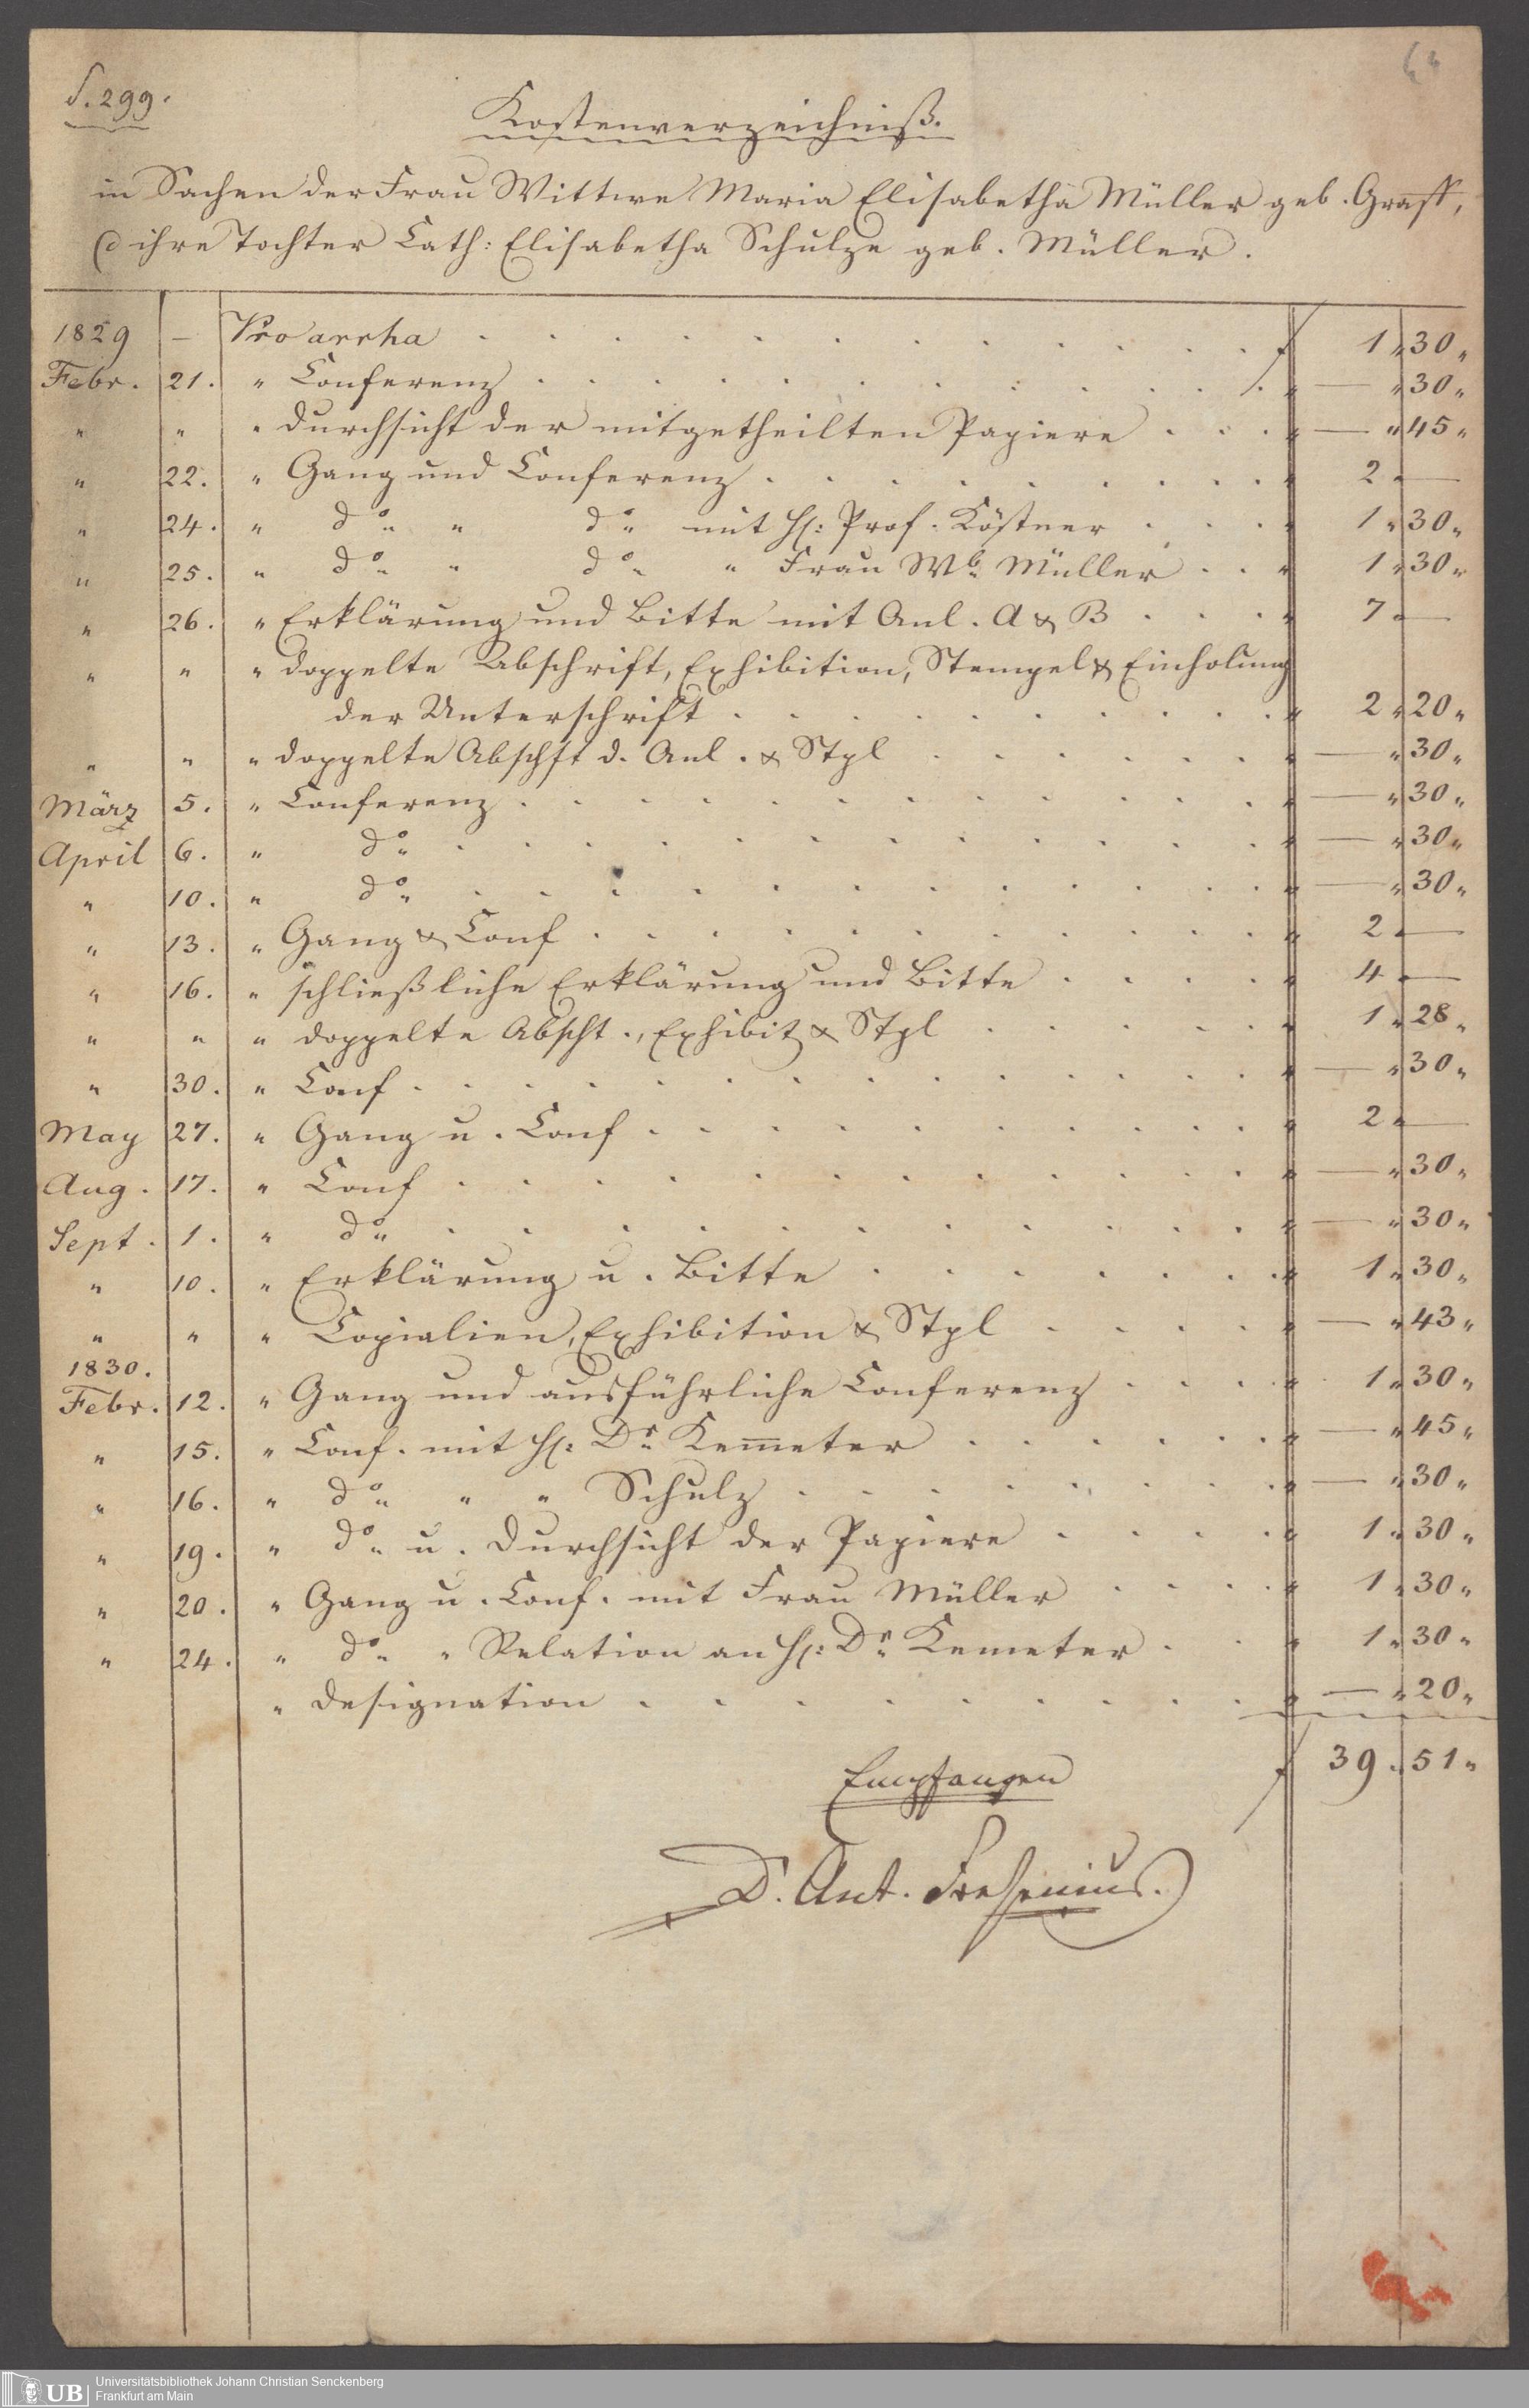 S. 299.
Kostenverzeichniß.
in Sachen der Frau Wittwe Maria Elisabetha Müller geb. Graff,
ihre Tochter Cath: Elisabetha Schulze geb. Müller.
1829 — Pro arrha . . . f 1 " 30 "
Febr. 21. " Conferenz . . . " — " 30 "
" " " durchsicht der mitgetheilten Papiere . . . " — " 45 "
" 22. " Gang und Conferenz . . . " 2 " —
" 24. " do " do mit H: Prof. Köstner . . . " 1 " 30 "
" 25. " do " do " Frau Wb Müller . . " 1 " 30 "
" 26. " Erklärung und Bitte mit Anl. A & B . . . " 7 " —
" " " doppelte Abschrift, Exhibition, Stempel & Einholung
der Unterschrift . . . " 2 " 20 "
" " " doppelte Abschft d. Anl. & Stpl . . . " — " 30 "
März 5. " Conferenz . . . " — " 30 "
April 6. " do . . . " — " 30 "
" 10. " do . . . " — " 30 "
" 13. " Gang & Conf . . . " 2 " —
" 16. " schließliche Erklärung und Bitte . . . " 4 " —
" " " doppelte Abscht., Exhibit & Stpl . . . " 1 " 28 "
" 30. " Conf . . . " — " 30 "
May 27. " Gang u. Conf . . . " 2 " —
Aug. 17. " Conf . . . " — " 30 "
Sept. 1. " do . . . " — " 30 "
" 10. " Erklärung u. Bitte . . . " 1 " 30 "
" " " Copialien, Exhibition & Stpl . . . " — " 43 "
1830.
Febr. 12. " Gang und ausführliche Conferenz . . . " 1 " 30 "
" 15. " Conf. mit H: Dr Kem̅eter . . . " — " 45 "
" 16. " do " " Schulz . . . " — " 30 "
" 19. " do u. Durchsicht der Papiere . . . " 1 " 30 "
" 20. " Gang u. Conf. mit Frau Müller . . . " 1 " 30 "
" 24. " do " Relation an H: Dr Kemeter . . " 1 " 30 "
" designation . . . " — " 20 "
f 39 " 51 "
Empfangen
D. Ant. Fresenius.
UB Universitätsbibliothek Johann Christian Senckenberg
Frankfurt am Main